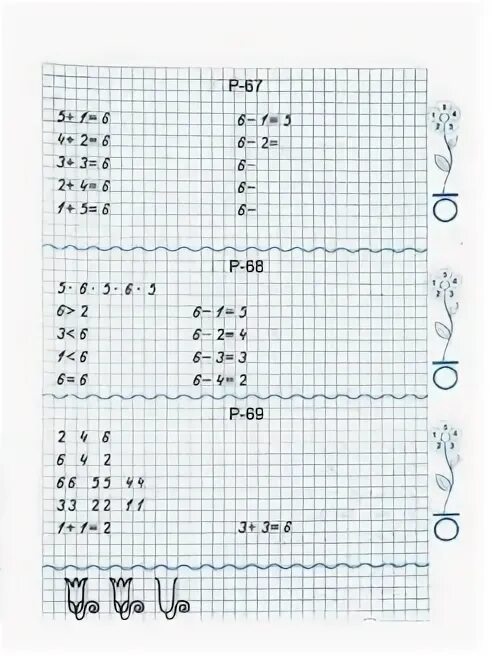 Р-67
5+1=6 6-1=5
4+2=6 6-2=
3+3=6 6-
2+4=6 6-
1+5=6 6-
1 5 4
2 3
Р-68
5·6·5·6·5
6>2 6-1=5
3<6 6-2=4
1<6 6-3=3
6=6 6-4=2
1 5 4
2 3
Р-69
2 4 6
6 4 2
66 55 44
33 22 11
1+1=2 3+3=6
1 5 4
2 3